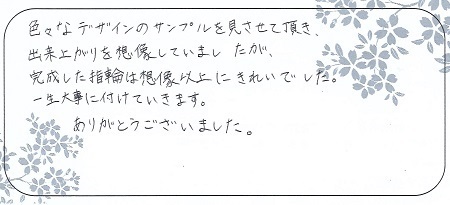 色々なデザインのサンプルを見させて頂き、
出来上がりを想像していましたが、
完成した指輪は想像以上にきれいでした。
一生大事に付けていきます。
ありがとうございました。